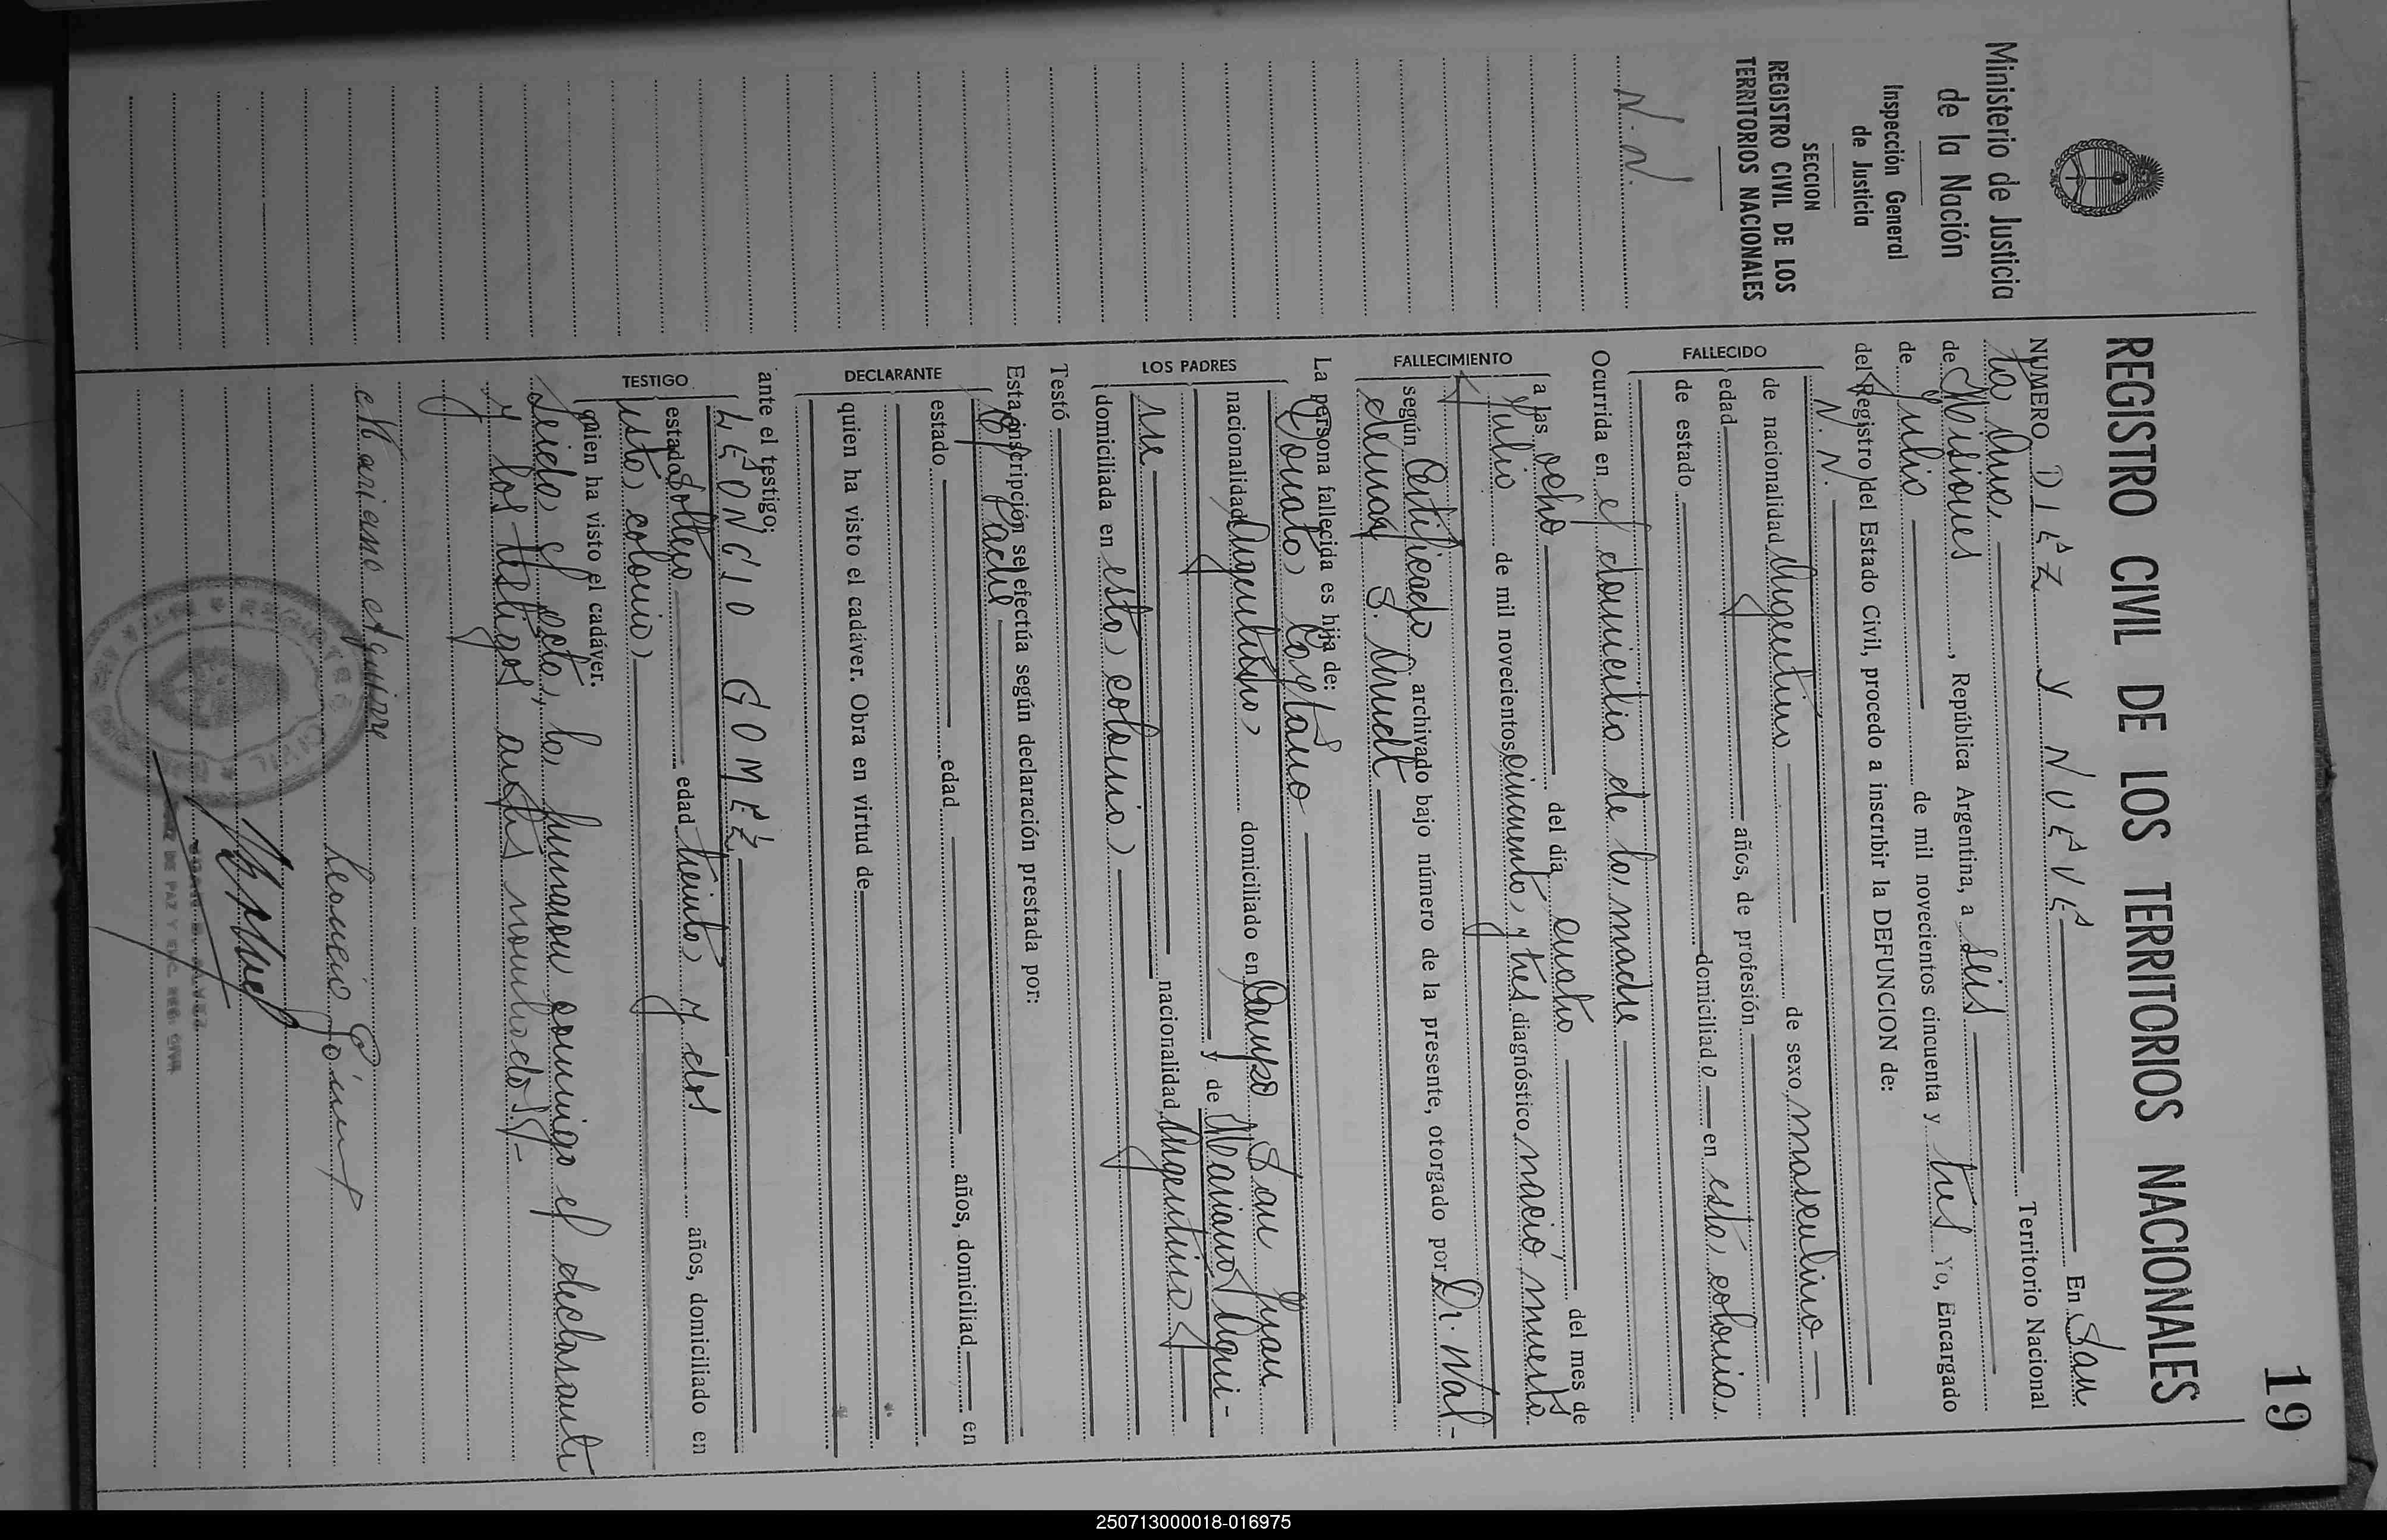 19
Ministerio de Justicia
de la Nación
Inspección General
de Justicia
SECCION
REGISTRO CIVIL DE LOS
TERRITORIOS NACIONALES
N. N.
REGISTRO CIVIL DE LOS TERRITORIOS NACIONALES
NUMERO DIEZ Y NUEVE En San
ta Ana, Territorio Nacional
de Misiones, República Argentina, a seis
de Julio de mil novecientos cincuenta y tres Yo, Encargado
del Registro del Estado Civil, procedo a inscribir la DEFUNCION de:
FALLECIDO
N. N.
de nacionalidad Argentino de sexo masculino
edad años, de profesión
de estado domiciliado en esta colonia
Ocurrida en el domicilio de la madre
FALLECIMIENTO
a las ocho del día cuatro del mes de
Julio de mil novecientos cincuenta y tres diagnóstico nació muerto
según Certificado archivado bajo número de la presente, otorgado por Dr. Wal-
demar S. Arnelt
La persona fallecida es hija de:
LOS PADRES
Donato Cayetano
nacionalidad Argentino domiciliado en Campo San Juan
y de Mariana Agui-
rre nacionalidad Argentina
domiciliada en esta colonia
Testó
Esta inscripción se efectúa según declaración prestada por:
DECLARANTE
El Padre
estado edad años, domiciliad en
quien ha visto el cadáver. Obra en virtud de
ante el testigo;
TESTIGO
LEONCIO GOMEZ
estado Soltero edad treinta y dos años, domiciliado en
esta colonia
quien ha visto el cadáver.
Leido el acta, la firmaron conmigo el declarante
y los testigos antes nombrados
Mariano Aguirre
Leoncio Gómez
JUEZ DE PAZ Y ENC. REG. CIVIL
250713000018-016975